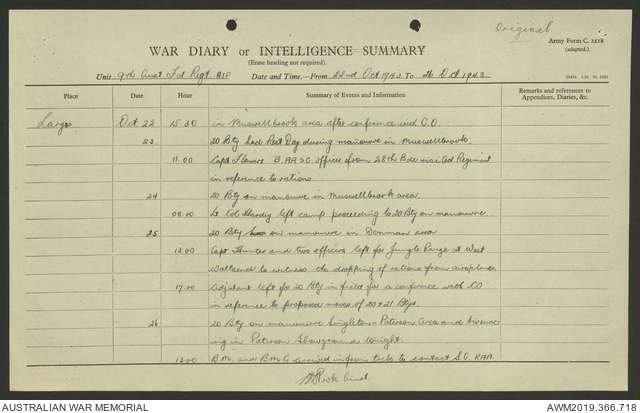 Original
WAR DIARY or INTELLIGENCE SUMMARY
(Erase heading not required).
Army Form C. 2118
(adapted.)
Unit 9th Aust Fd Regt. AIF Date and Time—From 22nd Oct 1943 To 26 Oct 1943
Place Date Hour Summary of Events and Information Remarks and references to
Appendices, Diaries, &c.
Largs Oct 22 15.30 in Muswellbrook area after conference with C.O.
23. 20 Bty had Rest Day during manouvre in Muswellbrook.
11.00 Capt B. AASC officer from 28th Bde visited Regiment
in reference to rations.
24 20 Bty on manouvre in Muswellbrook area.
08.00 Lt Col Hardy left camp proceeding to 20 Bty on manouvre.
25 20 Bty on manouvre in Denman area
12.00 Capt Hunter and two officers left for Jungle Range at West
Wallsend to witness the dropping of rations from aeroplanes.
17.00 Adjutant left for 20 Bty in field for a conference with CO
in reference to proposed moves of 20 & 21 Btys.
26 20 Bty on manouvre Singleton - Paterson Area and bivouac-
ing in Paterson Showground tonight.
12.00 B.M. and arrived in from to contact RAA.
Lieut.
AUSTRALIAN WAR MEMORIAL AWM2019.366.718